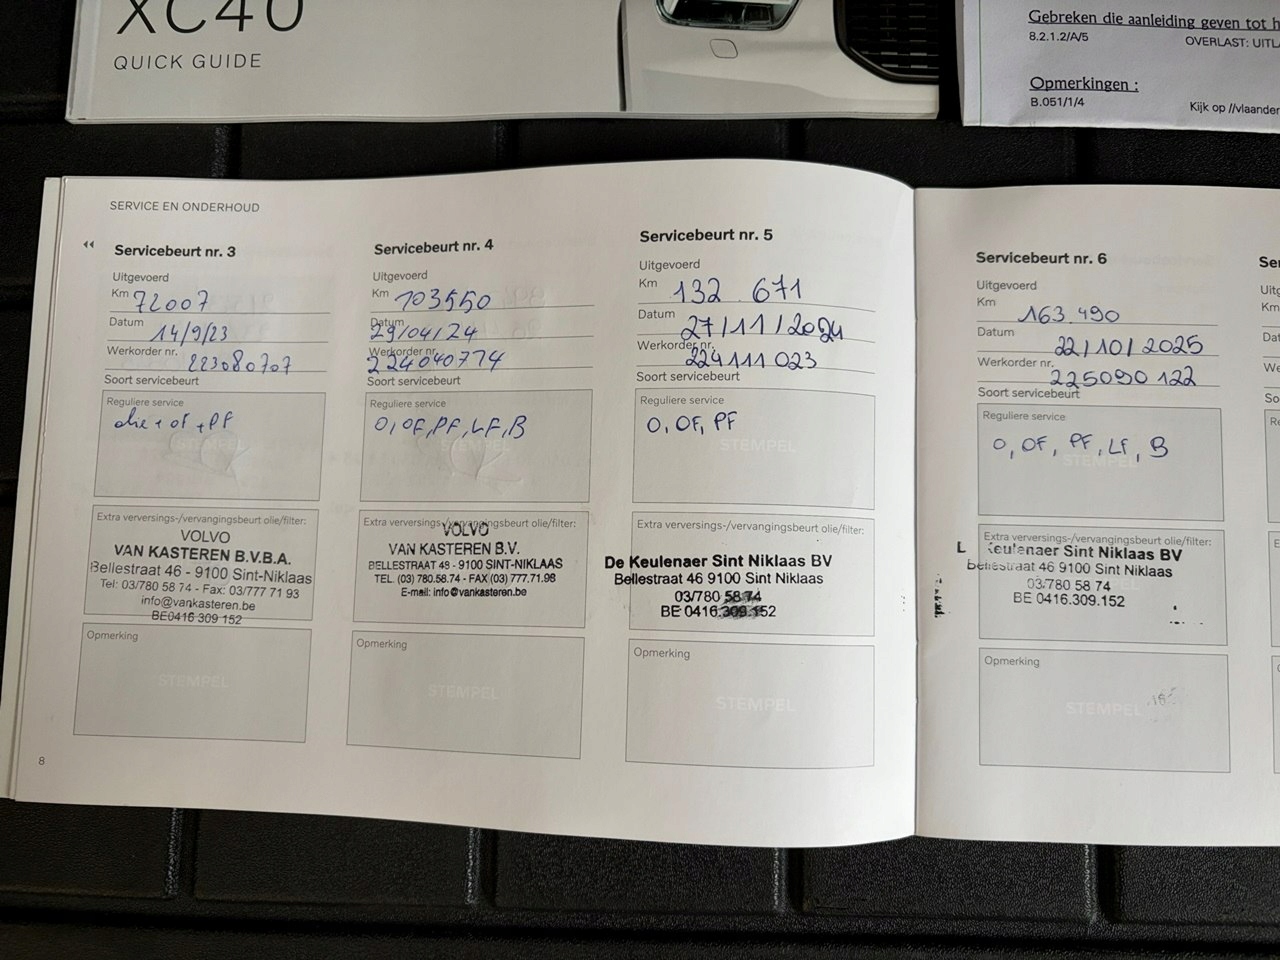 XC40
QUICK GUIDE
Gebreken die aanleiding geven tot h
8.2.1.2/A/5
OVERLAST: UITL
Opmerkingen :
B.051/1/4
Kijk op //vlaander
SERVICE EN ONDERHOUD
Servicebeurt nr. 3
Uitgevoerd
Km 72007
Datum 14/9/23
Werkorder nr. 223080707
Soort servicebeurt
Reguliere service
olie + OF + PF
STEMPEL
Extra verversings-/vervangingsbeurt olie/filter:
VOLVO
VAN KASTEREN B.V.B.A.
Bellestraat 46 - 9100 Sint-Niklaas
Tel: 03/780 58 74 - Fax: 03/777 71 93
info@vankasteren.be
BE0416 309 152
Opmerking
STEMPEL
8
Servicebeurt nr. 4
Uitgevoerd
Km 103550
Datum 29/04/24
Werkorder nr. 224040774
Soort servicebeurt
Reguliere service
O, OF, PF, LF, B
STEMPEL
Extra verversings-/vervangingsbeurt olie/filter:
VOLVO
VAN KASTEREN B.V.
BELLESTRAAT 46 - 9100 SINT-NIKLAAS
TEL. (03) 780.58.74 - FAX (03) 777.71.98
E-mail: info@vankasteren.be
Opmerking
STEMPEL
Servicebeurt nr. 5
Uitgevoerd
Km 132 671
Datum 27/11/2024
Werkorder nr. 224111023
Soort servicebeurt
Reguliere service
O, OF, PF
STEMPEL
Extra verversings-/vervangingsbeurt olie/filter:
De Keulenaer Sint Niklaas BV
Bellestraat 46 9100 Sint Niklaas
03/780 58 74
BE 0416.309.152
Opmerking
STEMPEL
Servicebeurt nr. 6
Uitgevoerd
Km 163.490
Datum 22/10/2025
Werkorder nr. 225090122
Soort servicebeurt
Reguliere service
O, OF, PF, LF, B
STEMPEL
Extra verversings-/vervangingsbeurt olie/filter:
Keulenaer Sint Niklaas BV
Bellestraat 46 9100 Sint Niklaas
03/780 58 74
BE 0416.309.152
Opmerking
STEMPEL